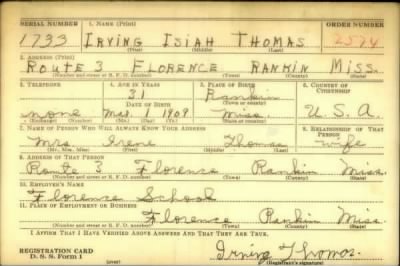 SERIAL NUMBER 1. NAME (Print) ORDER NUMBER
1733 IRVING ISIAH THOMAS 2574
(First) (Middle) (Last)
2. ADDRESS (Print)
ROUTE 3 FLORENCE RANKIN MISS.
(Number and street or R. F. D. number) (Town) (County) (State)
3. TELEPHONE 4. AGE IN YEARS 5. PLACE OF BIRTH 6. COUNTRY OF CITIZENSHIP
31 Rankin
DATE OF BIRTH (Town or county)
none Mar. 1909 Miss. U.S.A.
(Exchange) (Number) (Mo.) (Day) (Yr.) (State or country)
7. NAME OF PERSON WHO WILL ALWAYS KNOW YOUR ADDRESS 8. RELATIONSHIP OF THAT PERSON
Mrs Irene Thomas wife
(Mr., Mrs., Miss) (First) (Middle) (Last)
9. ADDRESS OF THAT PERSON
Route 3 Florence Rankin Miss.
(Number and street or R. F. D. number) (Town) (County) (State)
10. EMPLOYER'S NAME
Florence School
11. PLACE OF EMPLOYMENT OR BUSINESS
Florence Rankin Miss.
(Number and street or R. F. D. number) (Town) (County) (State)
I AFFIRM THAT I HAVE VERIFIED ABOVE ANSWERS AND THAT THEY ARE TRUE.
REGISTRATION CARD
D. S. S. Form 1 (over) Irving Thomas
(Registrant's signature)